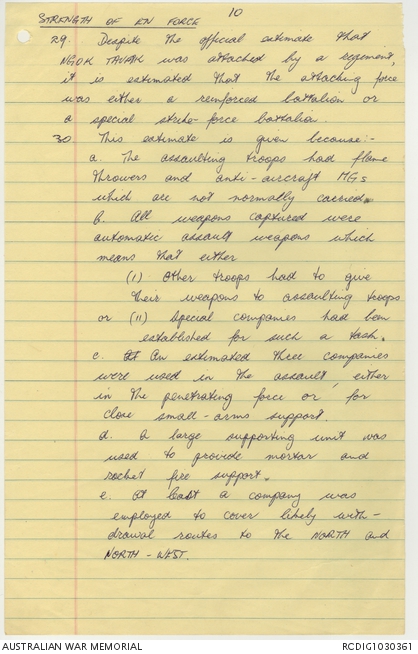 10
STRENGTH OF EN FORCE
29. Despite the official estimate that
NGOK TAVAK was attacked by a regiment,
it is estimated that the attacking force
was either a reinforced battalion or
a special strike-force battalion.
30 This estimate is given because:-
a. The assaulting troops had flame
throwers and anti-aircraft MGs
which are not normally carried.
b. All weapons captured were
automatic assault weapons which
means that either
(I) Other troops had to give
their weapons to assaulting troops
or (II) Special companies had been
established for such a task.
c. An estimated three companies
were used in the assault, either
in the penetrating force or for
close small-arms support.
d. A large supporting unit was
used to provide mortar and
rocket fire support.
e. At least a company was
employed to cover likely with-
drawal routes to the NORTH and
NORTH-WEST.
AUSTRALIAN WAR MEMORIAL
RCDIG1030361